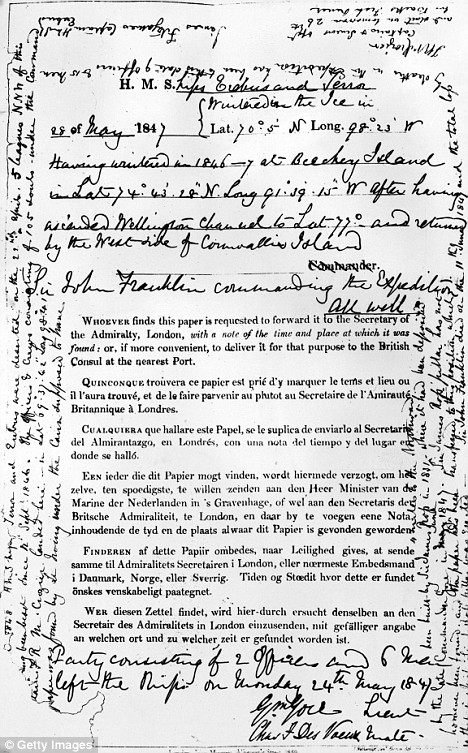 H. M. S. hips Erebus and Terror
Wintered in the Ice in
28 of May 1847 Lat. 70° 5' N Long. 98° 23' W
Having wintered in 1846-7 at Beechey Island
in Lat 74° 43' 28" N. Long 91° 39' 15" W After having
ascended Wellington Channel to Lat 77° and returned
by the West side of Cornwallis Island
Commander.
Sir John Franklin commanding the Expedition
All well
WHOEVER finds this paper is requested to forward it to the Secretary of
the Admiralty, London, with a note of the time and place at which it was
found: or, if more convenient, to deliver it for that purpose to the British
Consul at the nearest Port.
QUINCONQUE trouvera ce papier est prié d'y marquer le tems et lieu ou
il l'aura trouvé, et de le faire parvenir au plutot au Secretaire de l'Amirauté
Britannique à Londres.
CUALQUIERA que hallare este Papel, se le suplica de enviarlo al Secretario
del Almirantazgo, en Londrés, con una nota del tiempo y del lugar en
donde se halló.
EEN ieder die dit Papier mogt vinden, wordt hiermede verzogt, om het
zelve, ten spoedigste, te willen zenden aan den Heer Minister van de
Marine der Nederlanden in 's Gravenhage, of wel aan den Secretaris der
Britsche Admiraliteit, te London, en daar by te voegen eene Nota,
inhoudende de tyd en de plaats alwaar dit Papier is gevonden geworden
FINDEREN af dette Papiir ombedes, naar Leilighed gives, at sende
samme til Admiralitets Secretairen i London, eller nœrmeste Embedsmand
i Danmark, Norge, eller Sverrig. Tiden og Stœdit hvor dette er fundet
önskes venskabeligt paategnet.
WER diesen Zettel findet, wird hier-durch ersucht denselben an den
Secretair des Admiralitets in London einzusenden, mit gefälliger angabe
an welchen ort und zu welcher zeit er gefundet worden ist.
Party consisting of 2 Officers and 6 Men
left the Ships on Monday 24th May 1847
Gm Gore Lieut
Chas F Des Voeux Mate
1848 H M Ships Terror and Erebus were deserted on the 22nd April 5 leagues NNW of this
having been beset since 12th Sept 1846. The Officers & Crews consisting of 105 souls under the command
of Captain F R M Crozier landed here in Lat 69° 37' 42" Long 98° 41'
This paper was found by Lt Irving under the Cairn supposed to have
been built by Sir James Ross in 1831
to the Northward where it had been deposited
by the late Commander Gore in
1847. Sir James Ross' pillar has not
however been found and the paper has been
transferred to this position
Sir John Franklin died on the 11th June 1847 and the total loss
by deaths in the Expedition has been to this date 9 officers & 15 men
James Fitzjames Captain HMS
Erebus
F R M Crozier
Captain & Senior Offr
and start on tomorrow 26
for Backs Fish River
© Getty Images